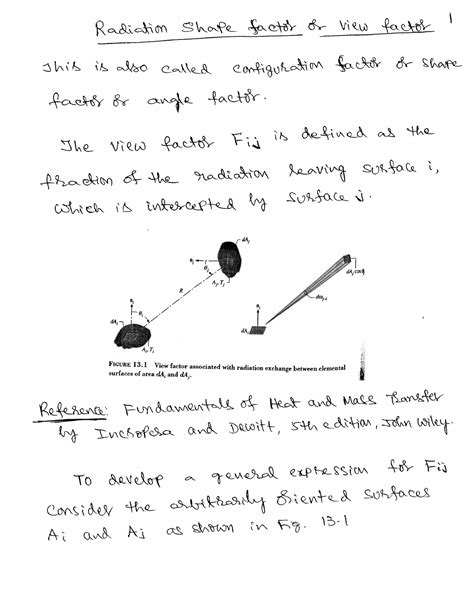 1
Radiation Shape factor or view factor
This is also called configuration factor or shape
factor or angle factor.
The view factor Fij is defined as the
fraction of the radiation leaving surface i,
which is intercepted by surface j.
dAj
nj
θj
Aj, Tj
R
ni
θi
dAi
Ai, Ti
dAj cosθj
dωj-i
ni
dAi
FIGURE 13.1 View factor associated with radiation exchange between elemental
surfaces of area dAi and dAj.
Reference: Fundamentals of Heat and Mass Transfer
by Incropera and Dewitt, 5th edition, John wiley.
To develop a general expression for Fij
Consider the arbitrarily oriented surfaces
Ai and Aj as shown in Fig. 13.1